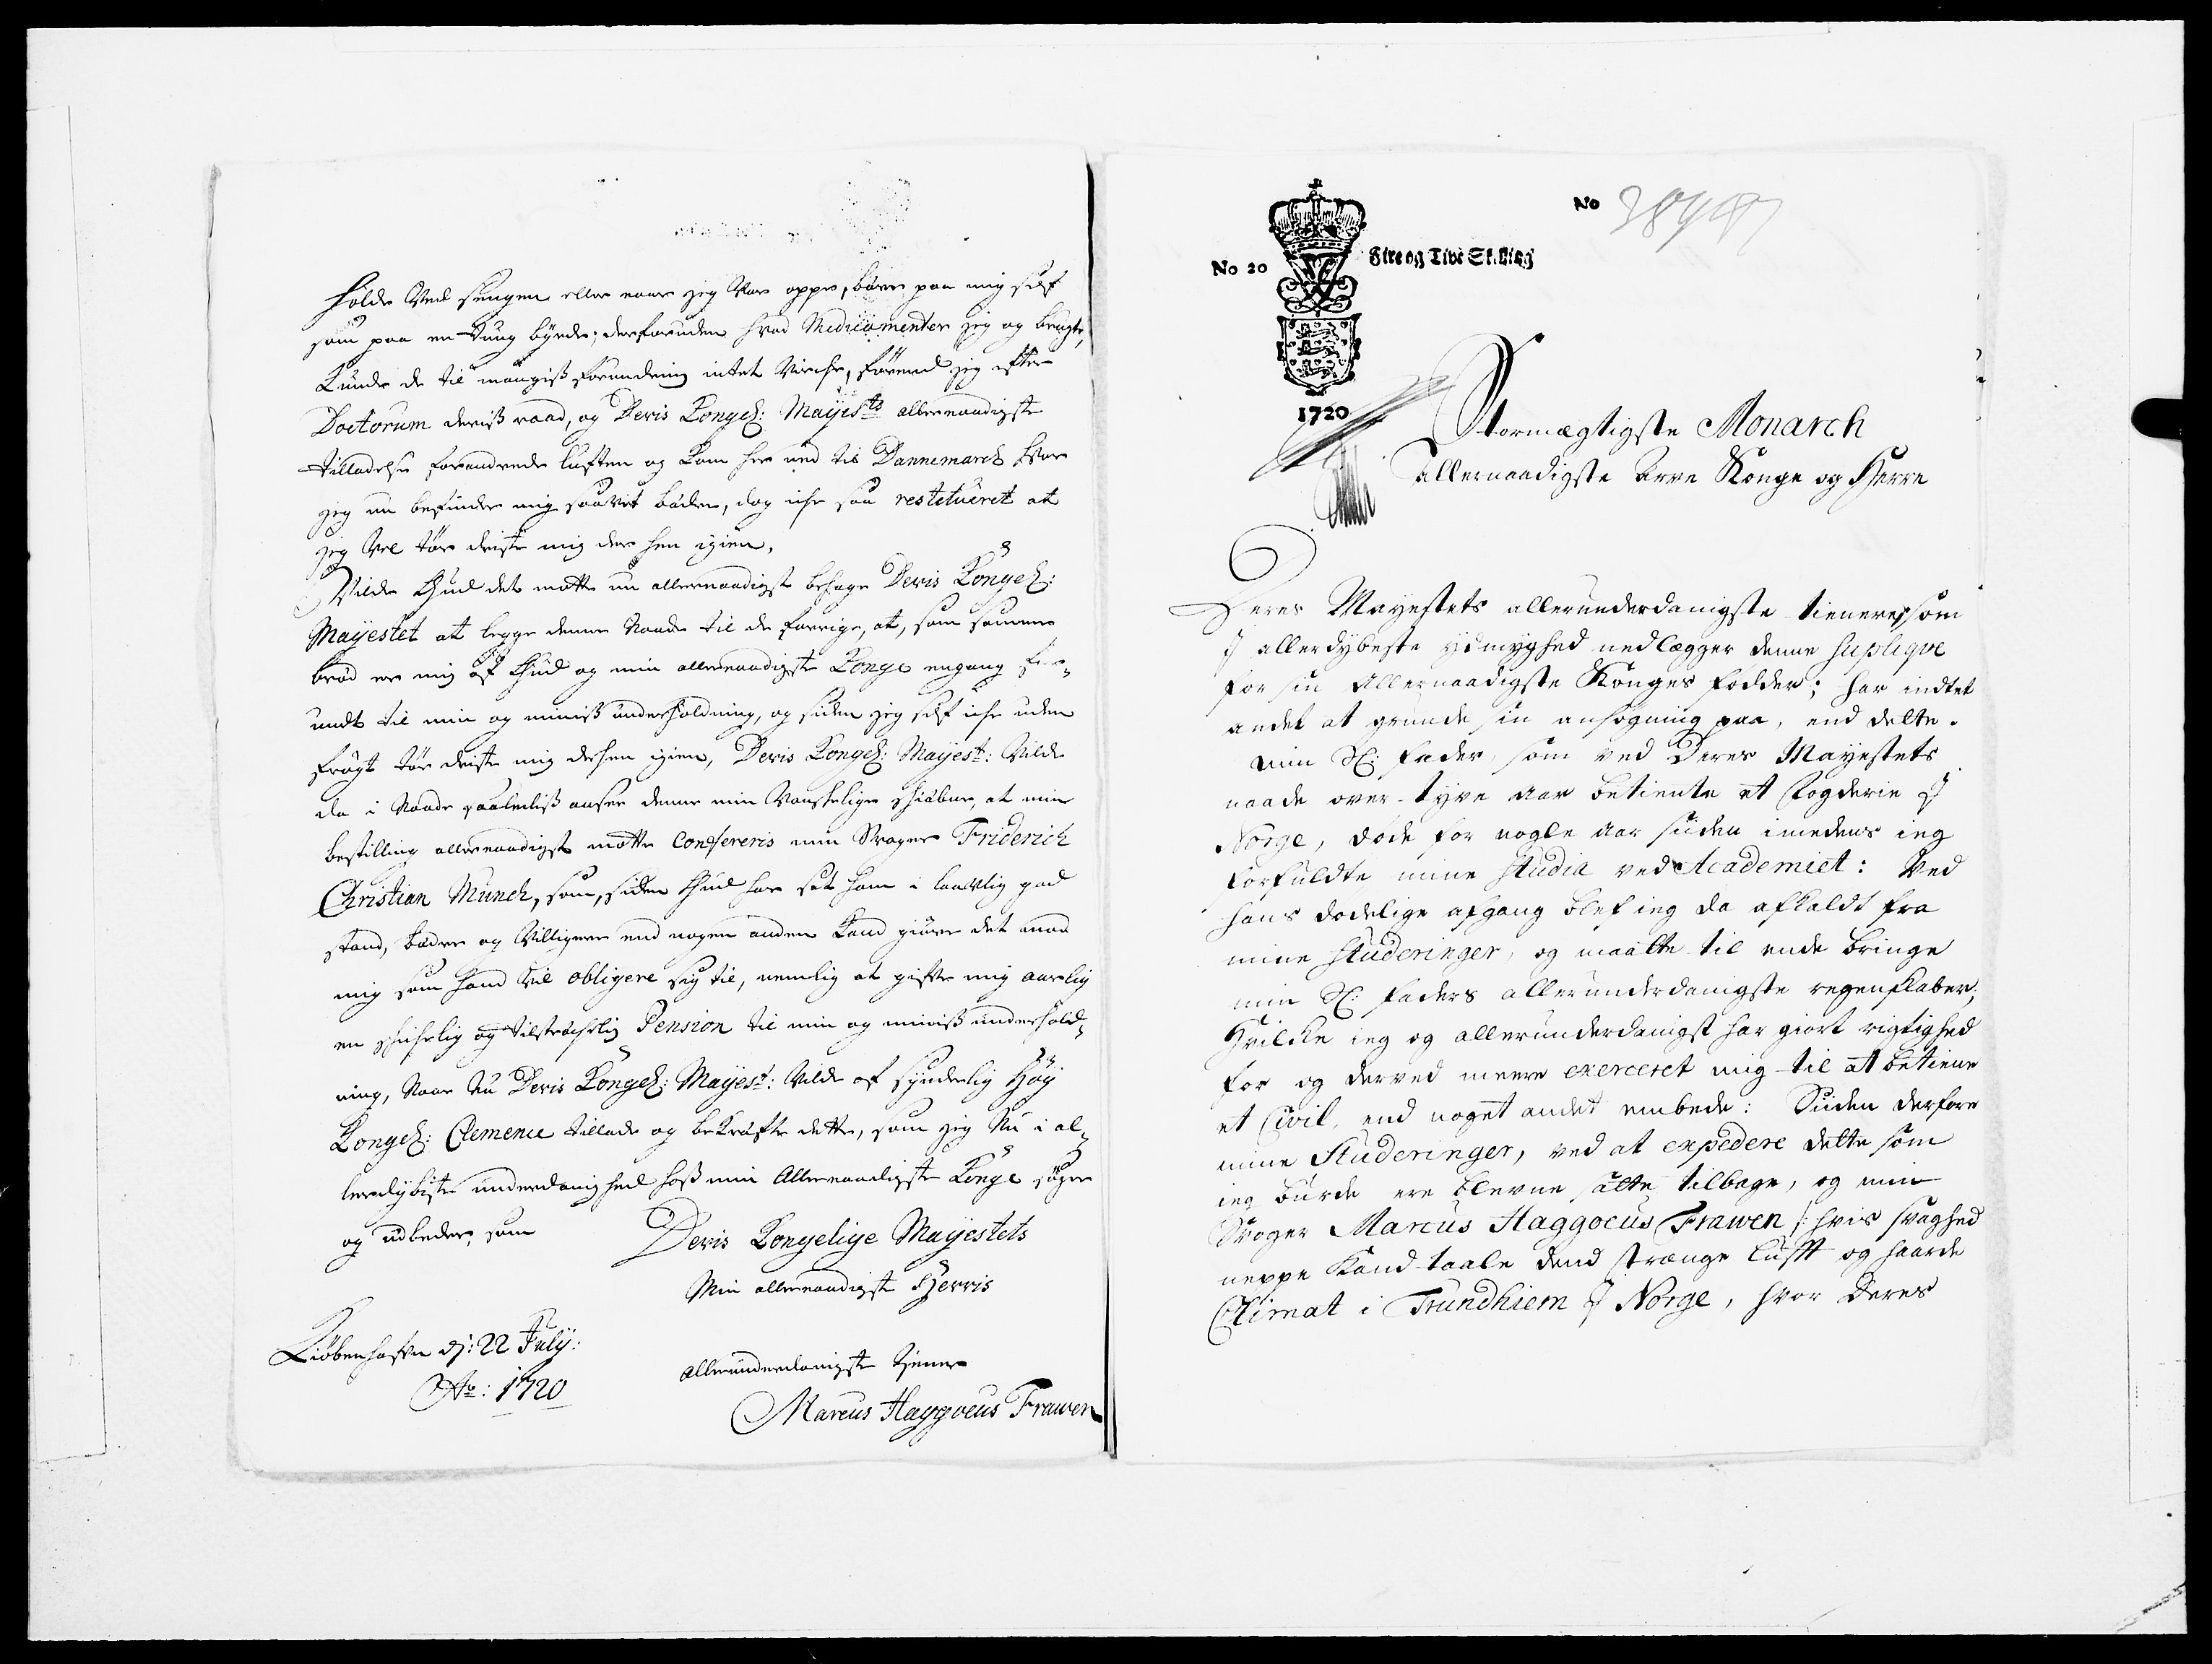 holde Ved sengen eller naar jeg Var oppe, bære paa mig self
som paa en tung byrde; desforuden hvad Medicamenter jeg og brugte,
Kunde de til mangis forundring intet Virche, förend jeg efter
Doctorum deris raad, og Deris Kongel: Mayests allernaadigste
tilladelse forendrede luften og kom her ned til Dannemarck hvor
jeg nu befinder mig saavit bædre, dog iche saa restitueret at
jeg Vel tör driste mig der hen igien.
Vilde Gud det motte nu allernaadigst behage Deris Kongel:
Mayestet at legge denne Naade til de forrige, at, som samme
bröd er mig af Gud og min allernaadigste Konge engang for-
undt til min og minis underholdning, og siden jeg self iche uden
frögt tör driste mig derhen igien, Deris Kongel: Mayest: Vilde
da i Naade saaledis ansee denne min Vanskelige skiæbne, at min
bestilling allernaadigst motte Confereris min Svoger Friderich
Christian Munch, som, siden Gud har sat ham i saavelig god
stand, bædre og Villigere end nogen anden kand giöre det mod
mig som hand Vil obligere sig til, nemlig at gifve mig aarlig
en skichelig og tilstrechelig Pension til min og minis underhold-
ning, Naar Nu Deris Kongel: Mayest: Vilde af synderlig Höy
Kongel: Clemence tillade og bekrefte dette, som jeg Nu i al-
lerdybiste underdanighed hos min Allernaadigste Konge söger
og udbeder, som
Deris Kongelige Mayestets
Min allernaadigste Herris
Kiöbenhafn dj: 22 July:
Ao: 1720
allerunderdanigste tiener
Marcus Haggoeus Frawen
No
No 20
Fire og Tive Skilling
1720
Stormægtigste Monarch
Allernaadigste Arve Konge og Herre
Deres Mayestets allerunderdanigste tienere, som
J allerdybeste ydmyghed nedlægger denne supliqve
for sin Allernaadigste Konges födder; har indtet
andet at grunde sin ansögning paa, end dette.
Min Sl: fader, som ved Deres Mayestets
naade over tyve aar betiente et Fogderie J
Norge, döde for nogle aar siden imedens ieg
forfuldte mine studia ved Academiet: Ved
hans dödelige afgang blef ieg da afkaldt fra
mine studeringer, og maatte til ende bringe
min Sl: faders allerunderdanigste regenskaber,
Hvilcke ieg og allerunderdanigst har giort rigtighed
for og derved meere exerceret mig til at betiene
et Civil, end noget andet embede: Siden derfore
mine Studeringer, ved at expedere dette som
ieg burde ere blevne satte tilbage, og min
Svoger Marcus Haggoeus Frawen /: hvis svaghed
neppe kand taale dend strænge lufft og haarde
Climat i Trundhiem J Norge, hvor Deres